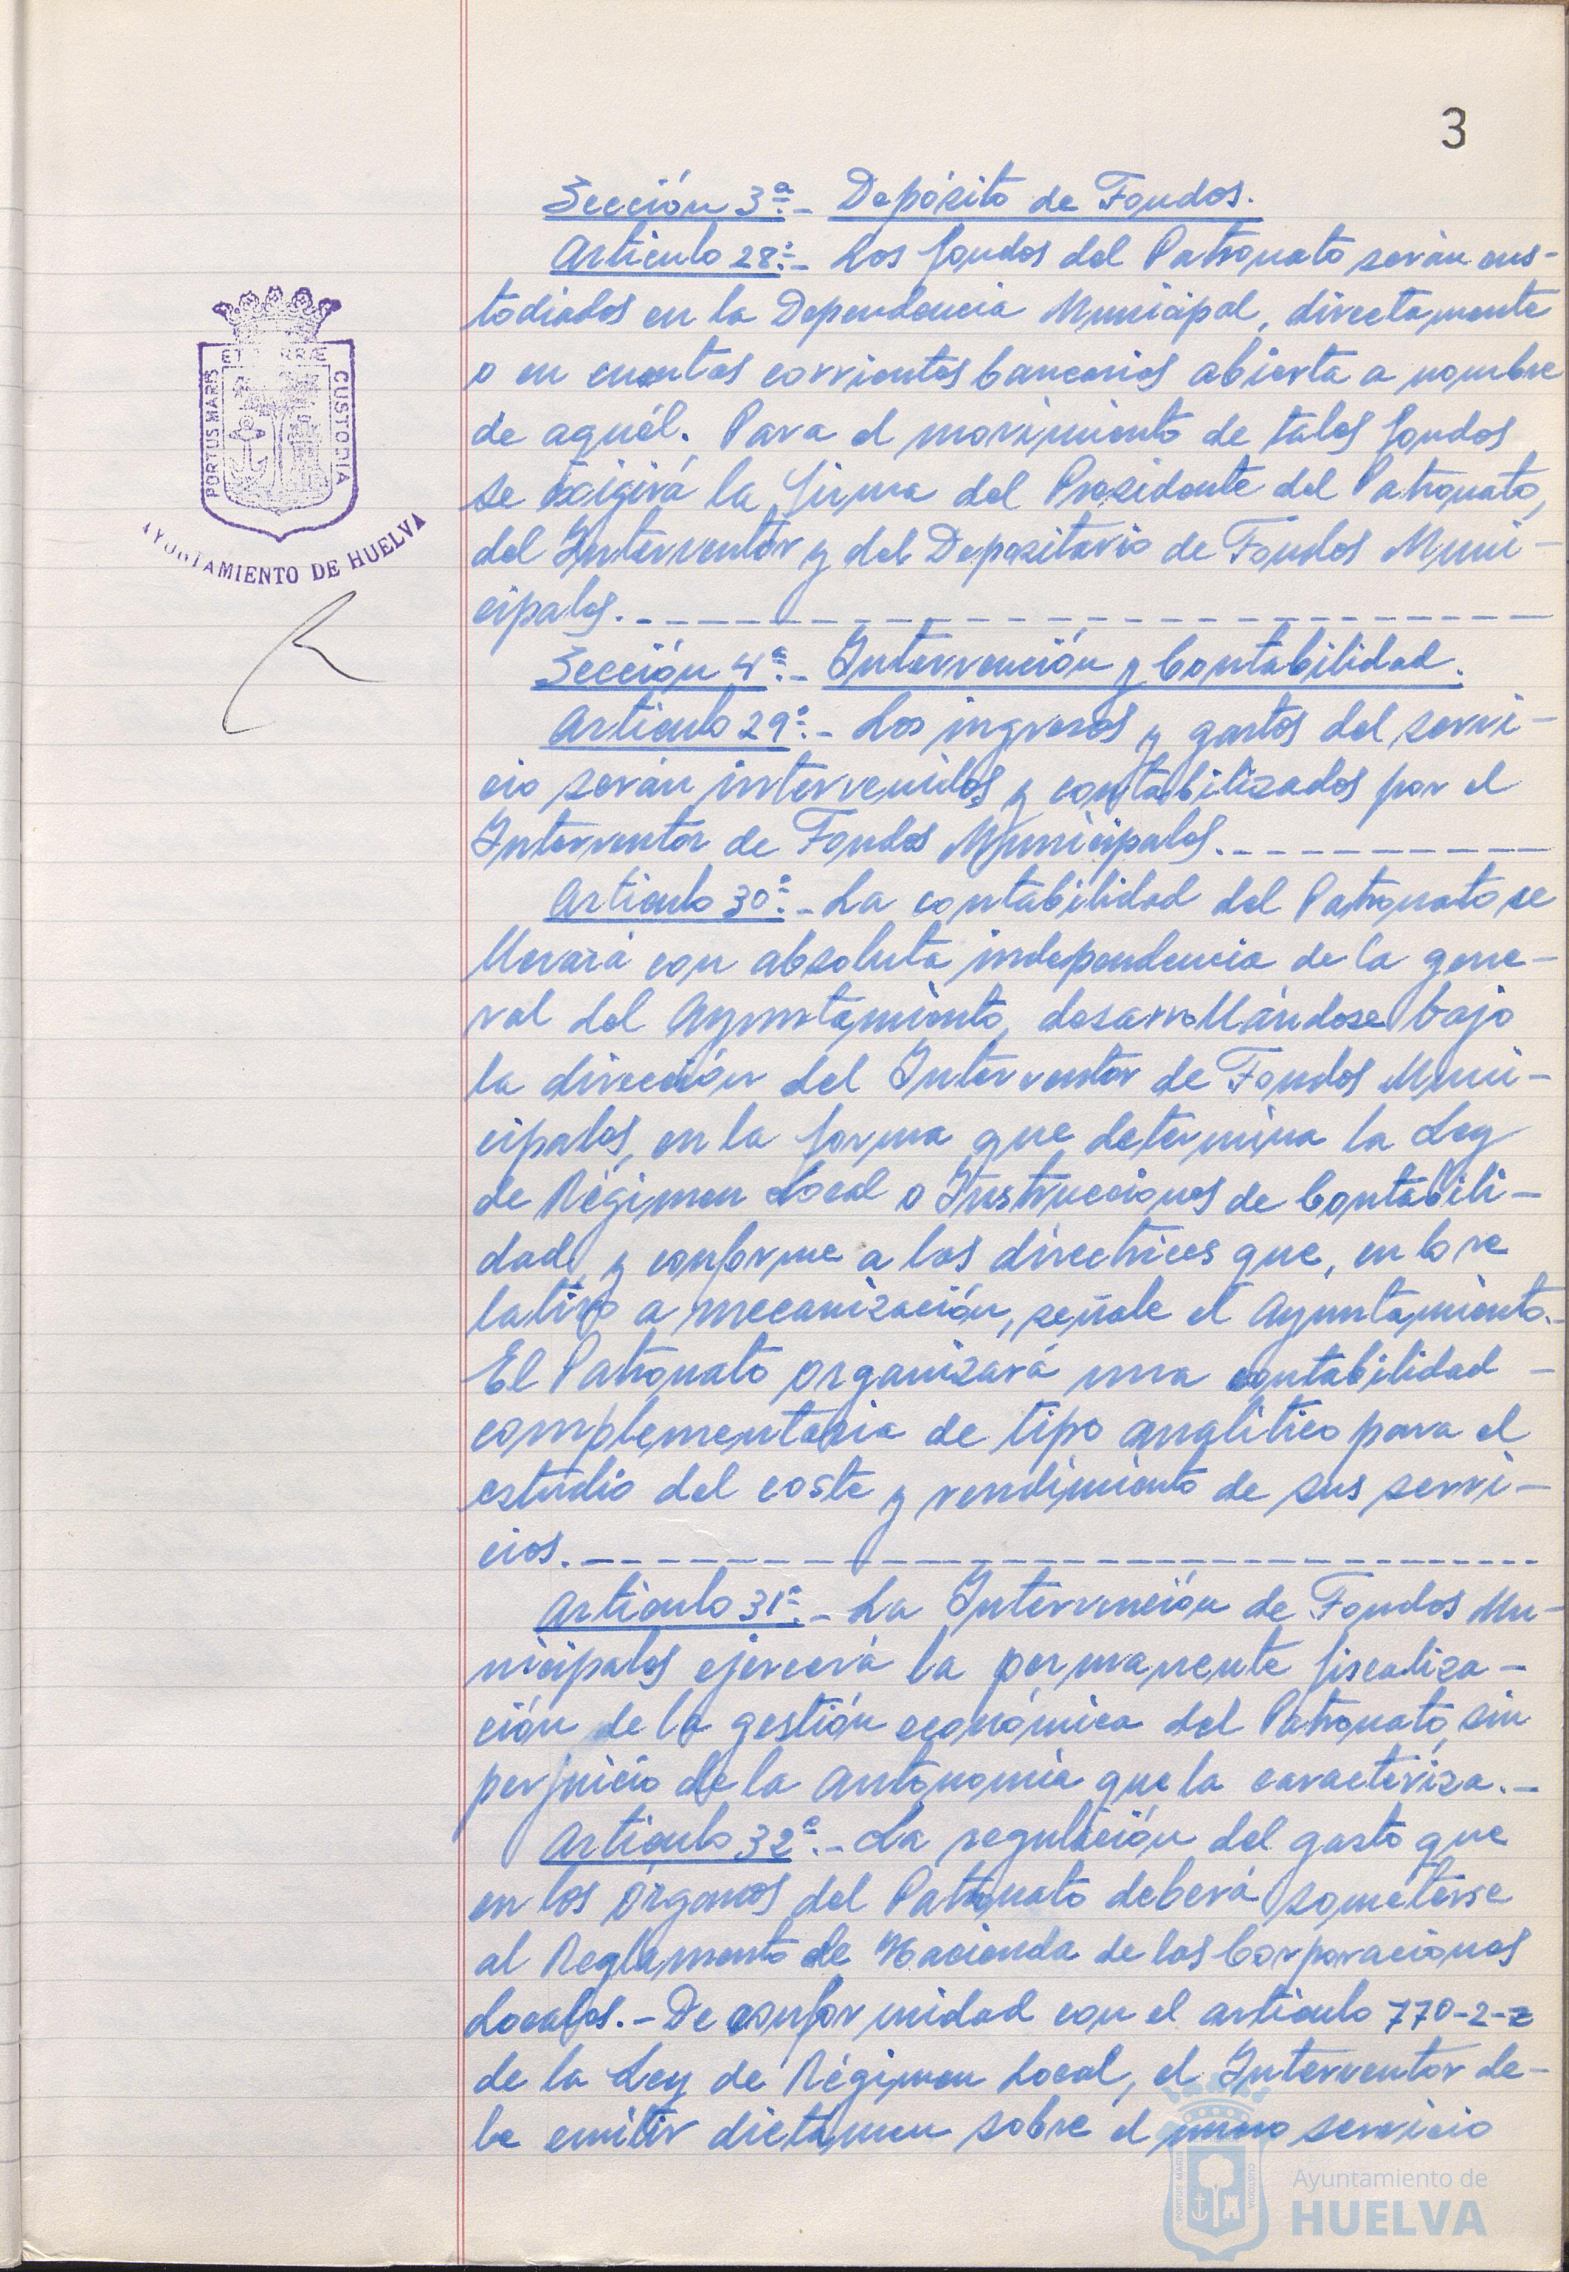 3
Sección 3ª.- Depósito de Fondos.
Artículo 28º.- Los fondos del Patronato serán cus-
todiados en la Dependencia Municipal, directamente
o en cuentas corrientes bancarias abierta a nombre
de aquél. Para el movimiento de tales fondos
se exigirá la firma del Presidente del Patronato,
del Interventor y del Depositario de Fondos Muni-
cipales.
Sección 4ª.- Intervención y Contabilidad.
Artículo 29º.- Los ingresos y gastos del servi-
cio serán intervenidos y contabilizados por el
Interventor de Fondos Municipales.
Artículo 30º.- La contabilidad del Patronato se
llevará con absoluta independencia de la gene-
ral del Ayuntamiento, desarrollándose bajo
la dirección del Interventor de Fondos Muni-
cipales, en la forma que determina la Ley
de Régimen Local o Instrucciones de Contabili-
dad, y conforme a las directrices que, en lo re
lativo a mecanización, señale el Ayuntamiento.-
El Patronato organizará una contabilidad -
complementaria de tipo analítico para el
estudio del coste y rendimiento de sus servi-
cios.
Artículo 31º.- La Intervención de Fondos Mu-
nicipales ejercerá la permanente fiscaliza-
ción de la gestión económica del Patronato, sin
perjuicio de la autonomía que la caracteriza.-
Artículo 32º.- La regulación del gasto que
en los órganos del Patronato deberá someterse
al Reglamento de Hacienda de las Corporaciones
Locales.- De conformidad con el artículo 770-2-
de la Ley de Régimen Local, el Interventor de-
be emitir dictamen sobre el nuevo servicio
PORTUS MARIS ET TERRÆ CUSTODIA
AYUNTAMIENTO DE HUELVA
PORTUS MARIS CUSTODIA
Ayuntamiento de
HUELVA